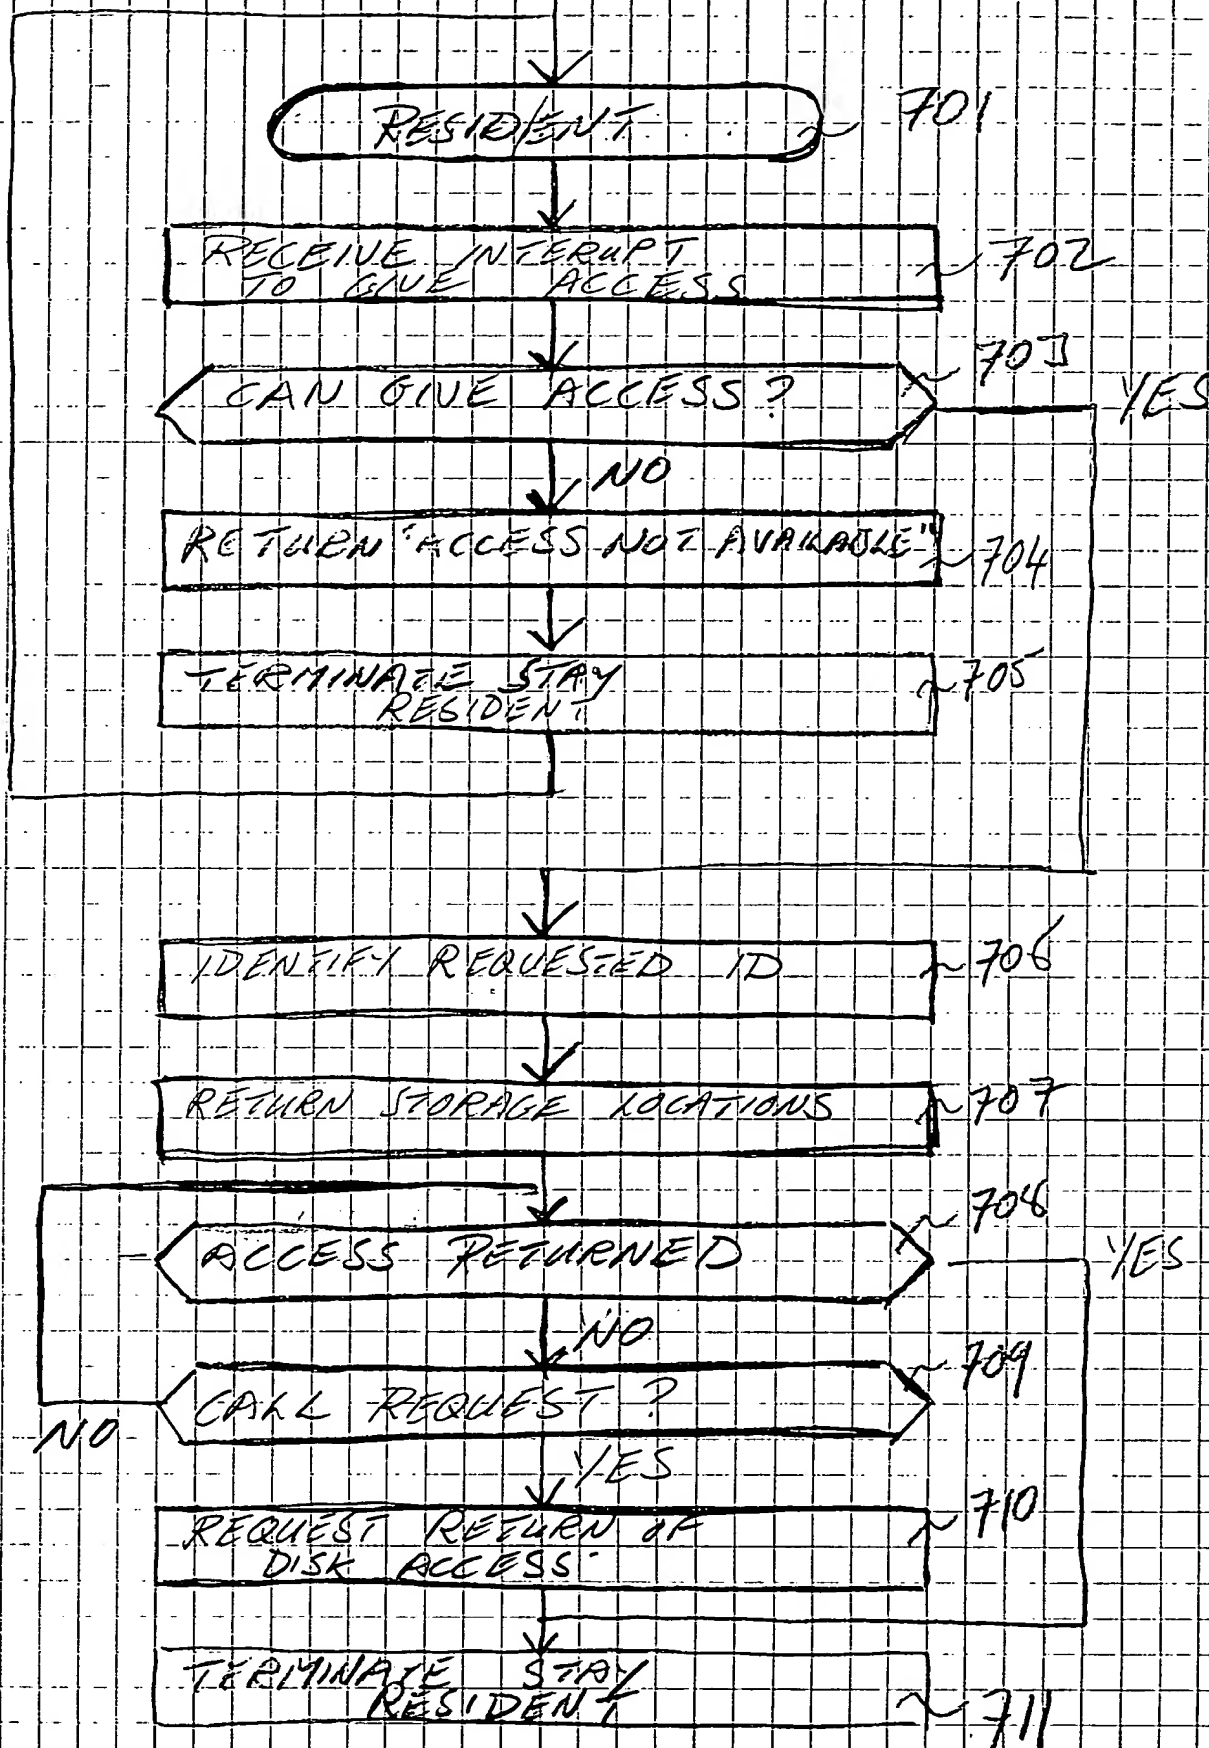 RESIDENT 701
RECEIVE INTERUPT
TO GIVE ACCESS 702
703
CAN GIVE ACCESS? YES
NO
RETURN "ACCESS NOT AVAILABLE" 704
TERMINATE STAY 705
RESIDENT
IDENTIFY REQUESTED ID 706
RETURN STORAGE LOCATIONS 707
708
ACCESS RETURNED YES
NO
709
CALL REQUEST ?
NO
YES
710
REQUEST RETURN OF
DISK ACCESS
TERMINATE STAY
RESIDENT 711